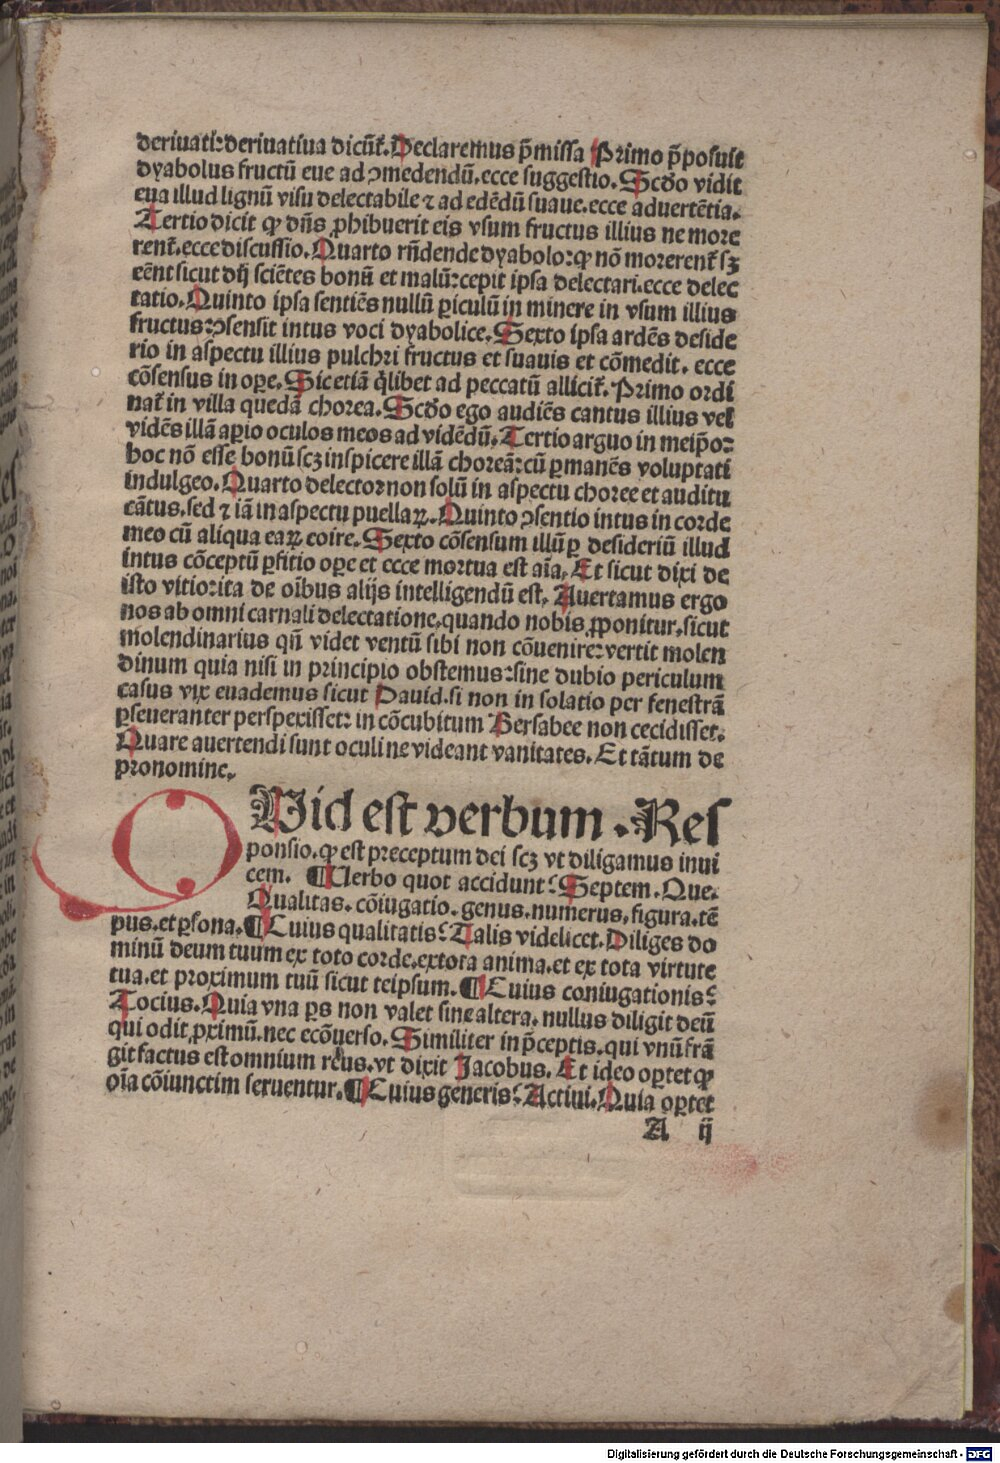 deriuati:deriuatiua dicūt᷑.Declaremus p̄missa Primo p̄posuit
dyabolus fructū eue ad ꝯmedendū.ecce suggestio.Scd̄o vidit
eua illud lignū visu delectabile ⁊ ad edēdū suaue.ecce aduertētia.
Tertio dicit ꝙ dn̄s ꝓhibuerit eis vsum fructus illius ne more
rent᷑.ecce discussio.Quarto rn̄dende dyabolo:ꝙ nō morerent᷑ sꝫ
eēnt sicut dij sciētes bonū et malū:cepit ipsa delectari.ecce delec
tatio.Quinto ipsa sentiēs nullū ꝑiculū in minere in vsum illius
fructus:ꝯsensit intus voci dyabolice.Sexto ipsa ardēs deside
rio in aspectu illius pulchri fructus et suauis et cōmedit. ecce
cōsensus in oꝑe.Sic etiā q̄libet ad peccatū allicit᷑.Primo ordi
nat᷑ in villa quedā chorea.Scd̄o ego audiēs cantus illius vel
vidēs illā aꝑio oculos meos ad vidēdū.Tertio arguo in meip̄o:
hoc nō esse bonū scꝫ inspicere illā choreā:cū ꝑmanēs voluptati
indulgeo.Quarto delector non solū in aspectu choree et auditu
cātus,sed ⁊ iā in aspectu puellaꝝ.Quinto ꝯsentio intus in corde
meo cū aliqua eaꝝ coire.Sexto cōsensum illū ꝑ desideriū illud
intus cōceptū ꝑfitio oꝑe et ecce mortua est aīa.Et sicut dixi de
isto vitio:ita de oībus alijs intelligendū est.Auertamus ergo
nos ab omni carnali delectatione.quando nobis ꝓponitur.sicut
molendinarius qn̄ videt ventū sibi non cōuenire:vertit molen
dinum quia nisi in principio obstemus:sine dubio periculum
casus vix euademus sicut Dauid.si non in solatio per fenestrā
ꝑseueranter perspexisset: in cōcubitum Bersabee non cecidisset.
Quare auertendi sunt oculi ne videant vanitates. Et tātum de
pronomine.
QVid est verbum .Res
ponsio.ꝙ est preceptum dei scꝫ vt diligamus inui
cem. ¶Uerbo quot accidunt? Septem.Que.
Qualitas. cōiugatio.genus.numerus.figura.tē
pus.et ꝑsona.¶Cuius qualitatis? Talis videlicet.Diliges do
minū deum tuum ex toto corde.ex tota anima.et ex tota virtute
tua.et proximum tuū sicut teipsum.¶Cuius coniugationis?
Tocius.Quia vna ꝑs non valet sine altera. nullus diligit deū
qui odit ꝓximū.nec ecōuerso.Similiter in p̄ceptis.qui vnū frā
git factus est omnium reus.vt dixit Jacobus. Et ideo oꝑtet ꝙ
oīa cōiunctim seruentur.¶Cuius generis? Actiui.Quia oꝑtet
A ij
Digitalisierung gefördert durch die Deutsche Forschungsgemeinschaft - DFG